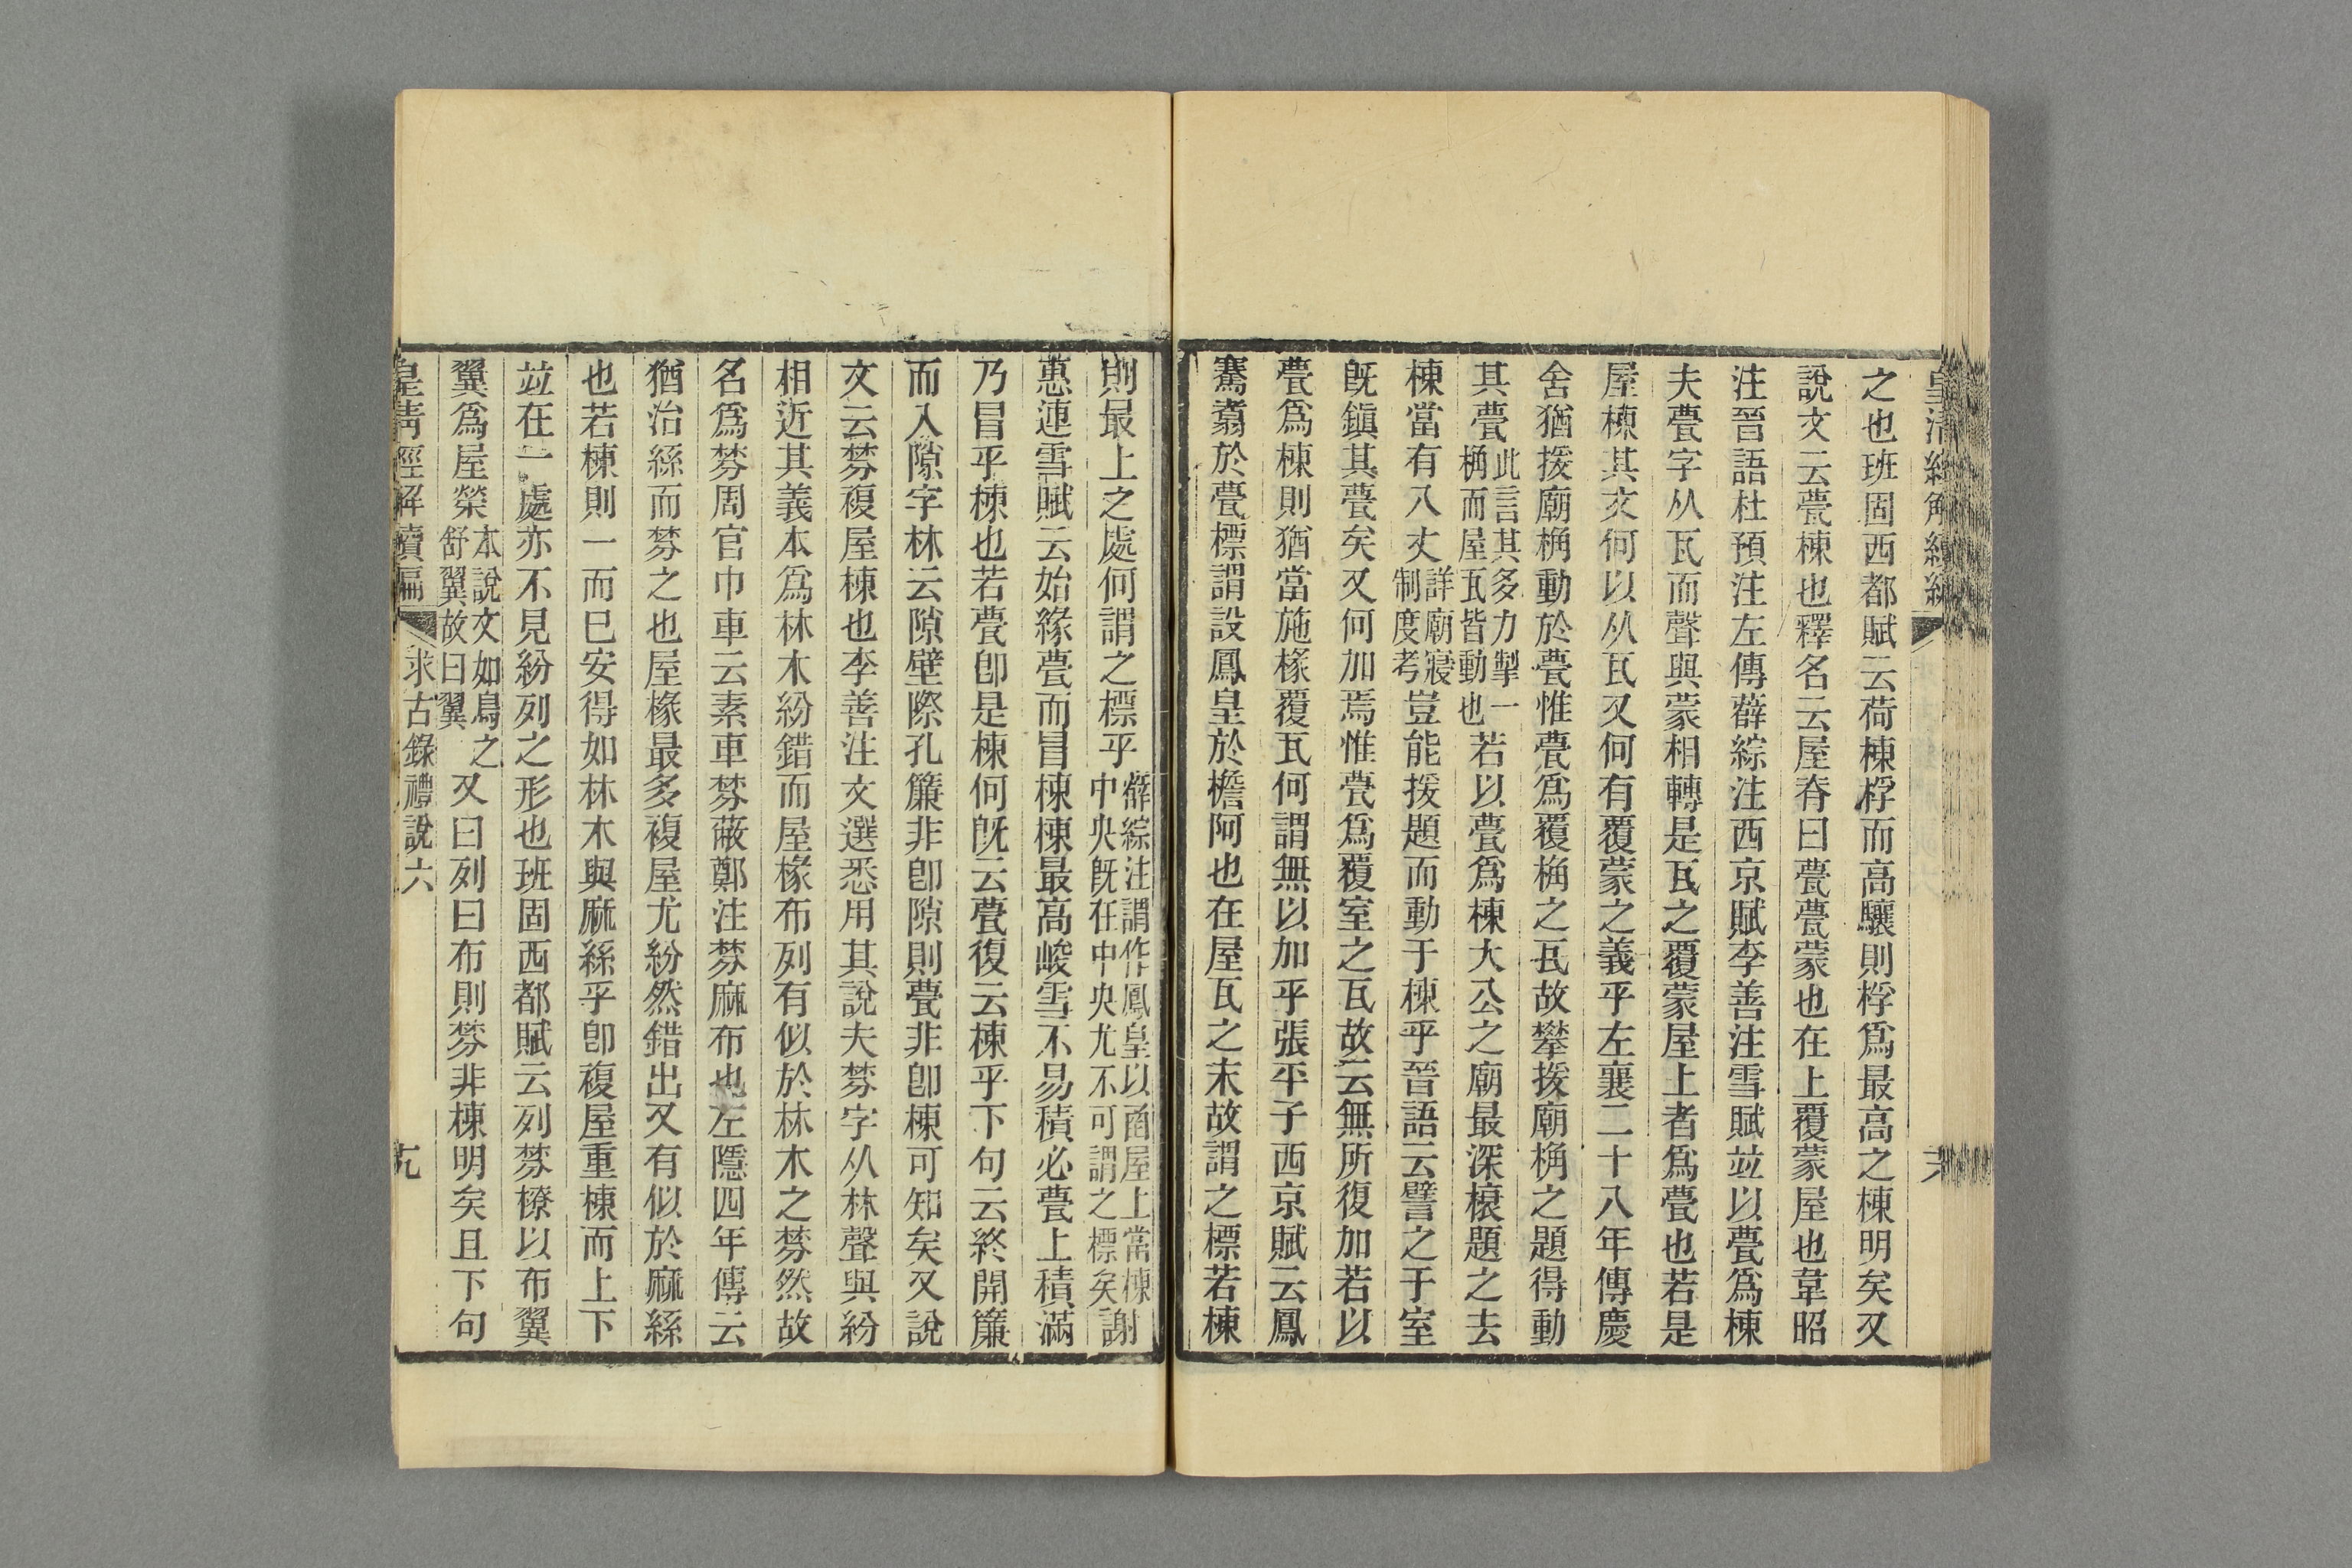 皇清經解續編
大
之也班固西都賦云荷棟桴而高驤則桴爲最高之棟明矣又
說文云甍棟也釋名云屋脊曰甍甍蒙也在上覆蒙屋也韋昭
注晉語杜預注左傳薛綜注西京賦李善注雪賦竝以甍爲棟
夫甍字从瓦而聲與蒙相轉是瓦之覆蒙屋上者爲甍也若是
屋棟其文何以从瓦又何有覆蒙之義乎左襄二十八年傳慶
舍猶援廟桷動於甍惟甍爲覆桷之瓦故攀援廟桷之題得動
其甍此言其多力掣一桷而屋瓦皆動也若以甍爲棟大公之廟最深榱題之去
棟當有八丈詳廟寢制度考豈能援題而動于棟乎晉語云譬之于室
旣鎭其甍矣又何加焉惟甍爲覆室之瓦故云無所復加若以
甍爲棟則猶當施椽覆瓦何謂無以加乎張平子西京賦云鳳
騫翥於甍標謂設鳳皇於檐阿也在屋瓦之末故謂之標若棟
則最上之處何謂之標乎薛綜注謂作鳳皇以函屋上當棟中央旣在中央尤不可謂之標矣謝
蕙連雪賦云始緣甍而冒棟棟最高峻雪不易積必甍上積滿
乃冒乎棟也若甍卽是棟何旣云甍復云棟乎下句云終開簾
而入隙字林云隙壁際孔簾非卽隙則甍非卽棟可知矣又說
文云棼複屋棟也李善注文選悉用其說夫棼字从林聲與紛
相近其義本爲林木紛錯而屋椽布列有似於林木之棼然故
名爲棼周官巾車云素車棼蔽鄭注棼麻布也左隱四年傳云
猶治絲而棼之也屋椽最多複屋尤紛然錯出又有似於麻絲
也若棟則一而已安得如林木與麻絲乎卽複屋重棟而上下
竝在一處亦不見紛列之形也班固西都賦云列棼橑以布翼
翼爲屋榮本說文如鳥之舒翼故曰翼又曰列曰布則棼非棟明矣且下句
皇淸經解續編
求古錄禮說六